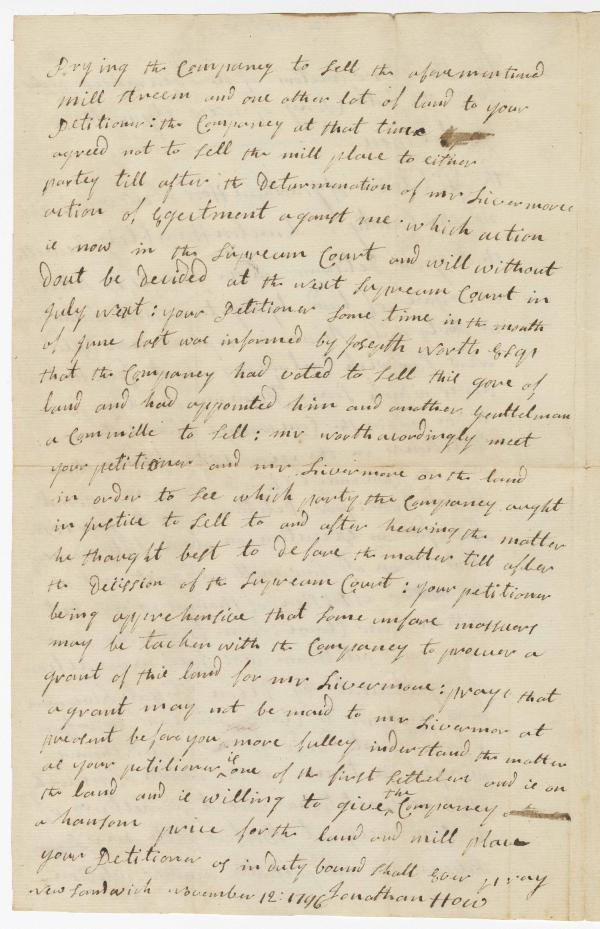 Prying the Compancy to Sell the aforementined
mill streem and one other lot of land to your
Petitioner: the Compancy at that time
agreed not to Sell the mill place to either
partey till after the Deturmenation of mr Livermores
action of Egectment against me which action
is now in the Supream Court and will without
Dout be Decided at the next Supream Court in
July next: your Petitioner Some time in the month
of June last was informed by Joseph North Esqr
that the Compancy had voted to Sell this gore of
land and had appointed him and another Genttelman
a Committe to Sell: mr north acordingly meet
your petitioner and mr Livermore on the land
in order to See which party the Compancy ought
in justice to Sell to and after hearing the matter
he thought best to Defare the matter till after
the Deission of the Supream Court: your petitioner
being apprehensive that Some unfare massuers
may be tacken with the Compancy to procuer a
grant of this land for mr Livermore: prays that
a grant may not be maid to mr Livermor at
present before you more fulley inderstand the matter
as your petitioner is one of the first Settelers and is on
the land and is willing to give the Compancy
a hansom price for the land and mill place
your Petitioner as in duty bound Shall Ever pray
New Sandwich November 12: 1796 Jonathan How